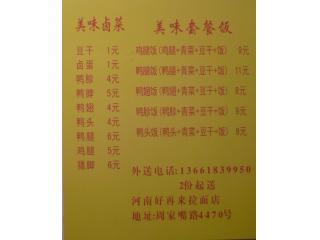 美味卤菜
豆干 1元
卤蛋 1元
鸭胗 4元
鸭脖 5元
鸭翅 4元
鸭头 4元
鸭腿 6元
鸡腿 5元
猪脚 6元
美味套餐饭
鸡腿饭(鸡腿+青菜+豆干+饭) 9元
鸭腿饭(鸭腿+青菜+豆干+饭) 11元
鸭翅饭(鸭翅+青菜+豆干+饭) 8元
鸭胗饭(鸭胗+青菜+豆干+饭) 9元
鸭头饭(鸭头+青菜+豆干+饭) 8元
外送电话:13661839950
2份起送
河南好再来拉面店
地址:周家嘴路4470号